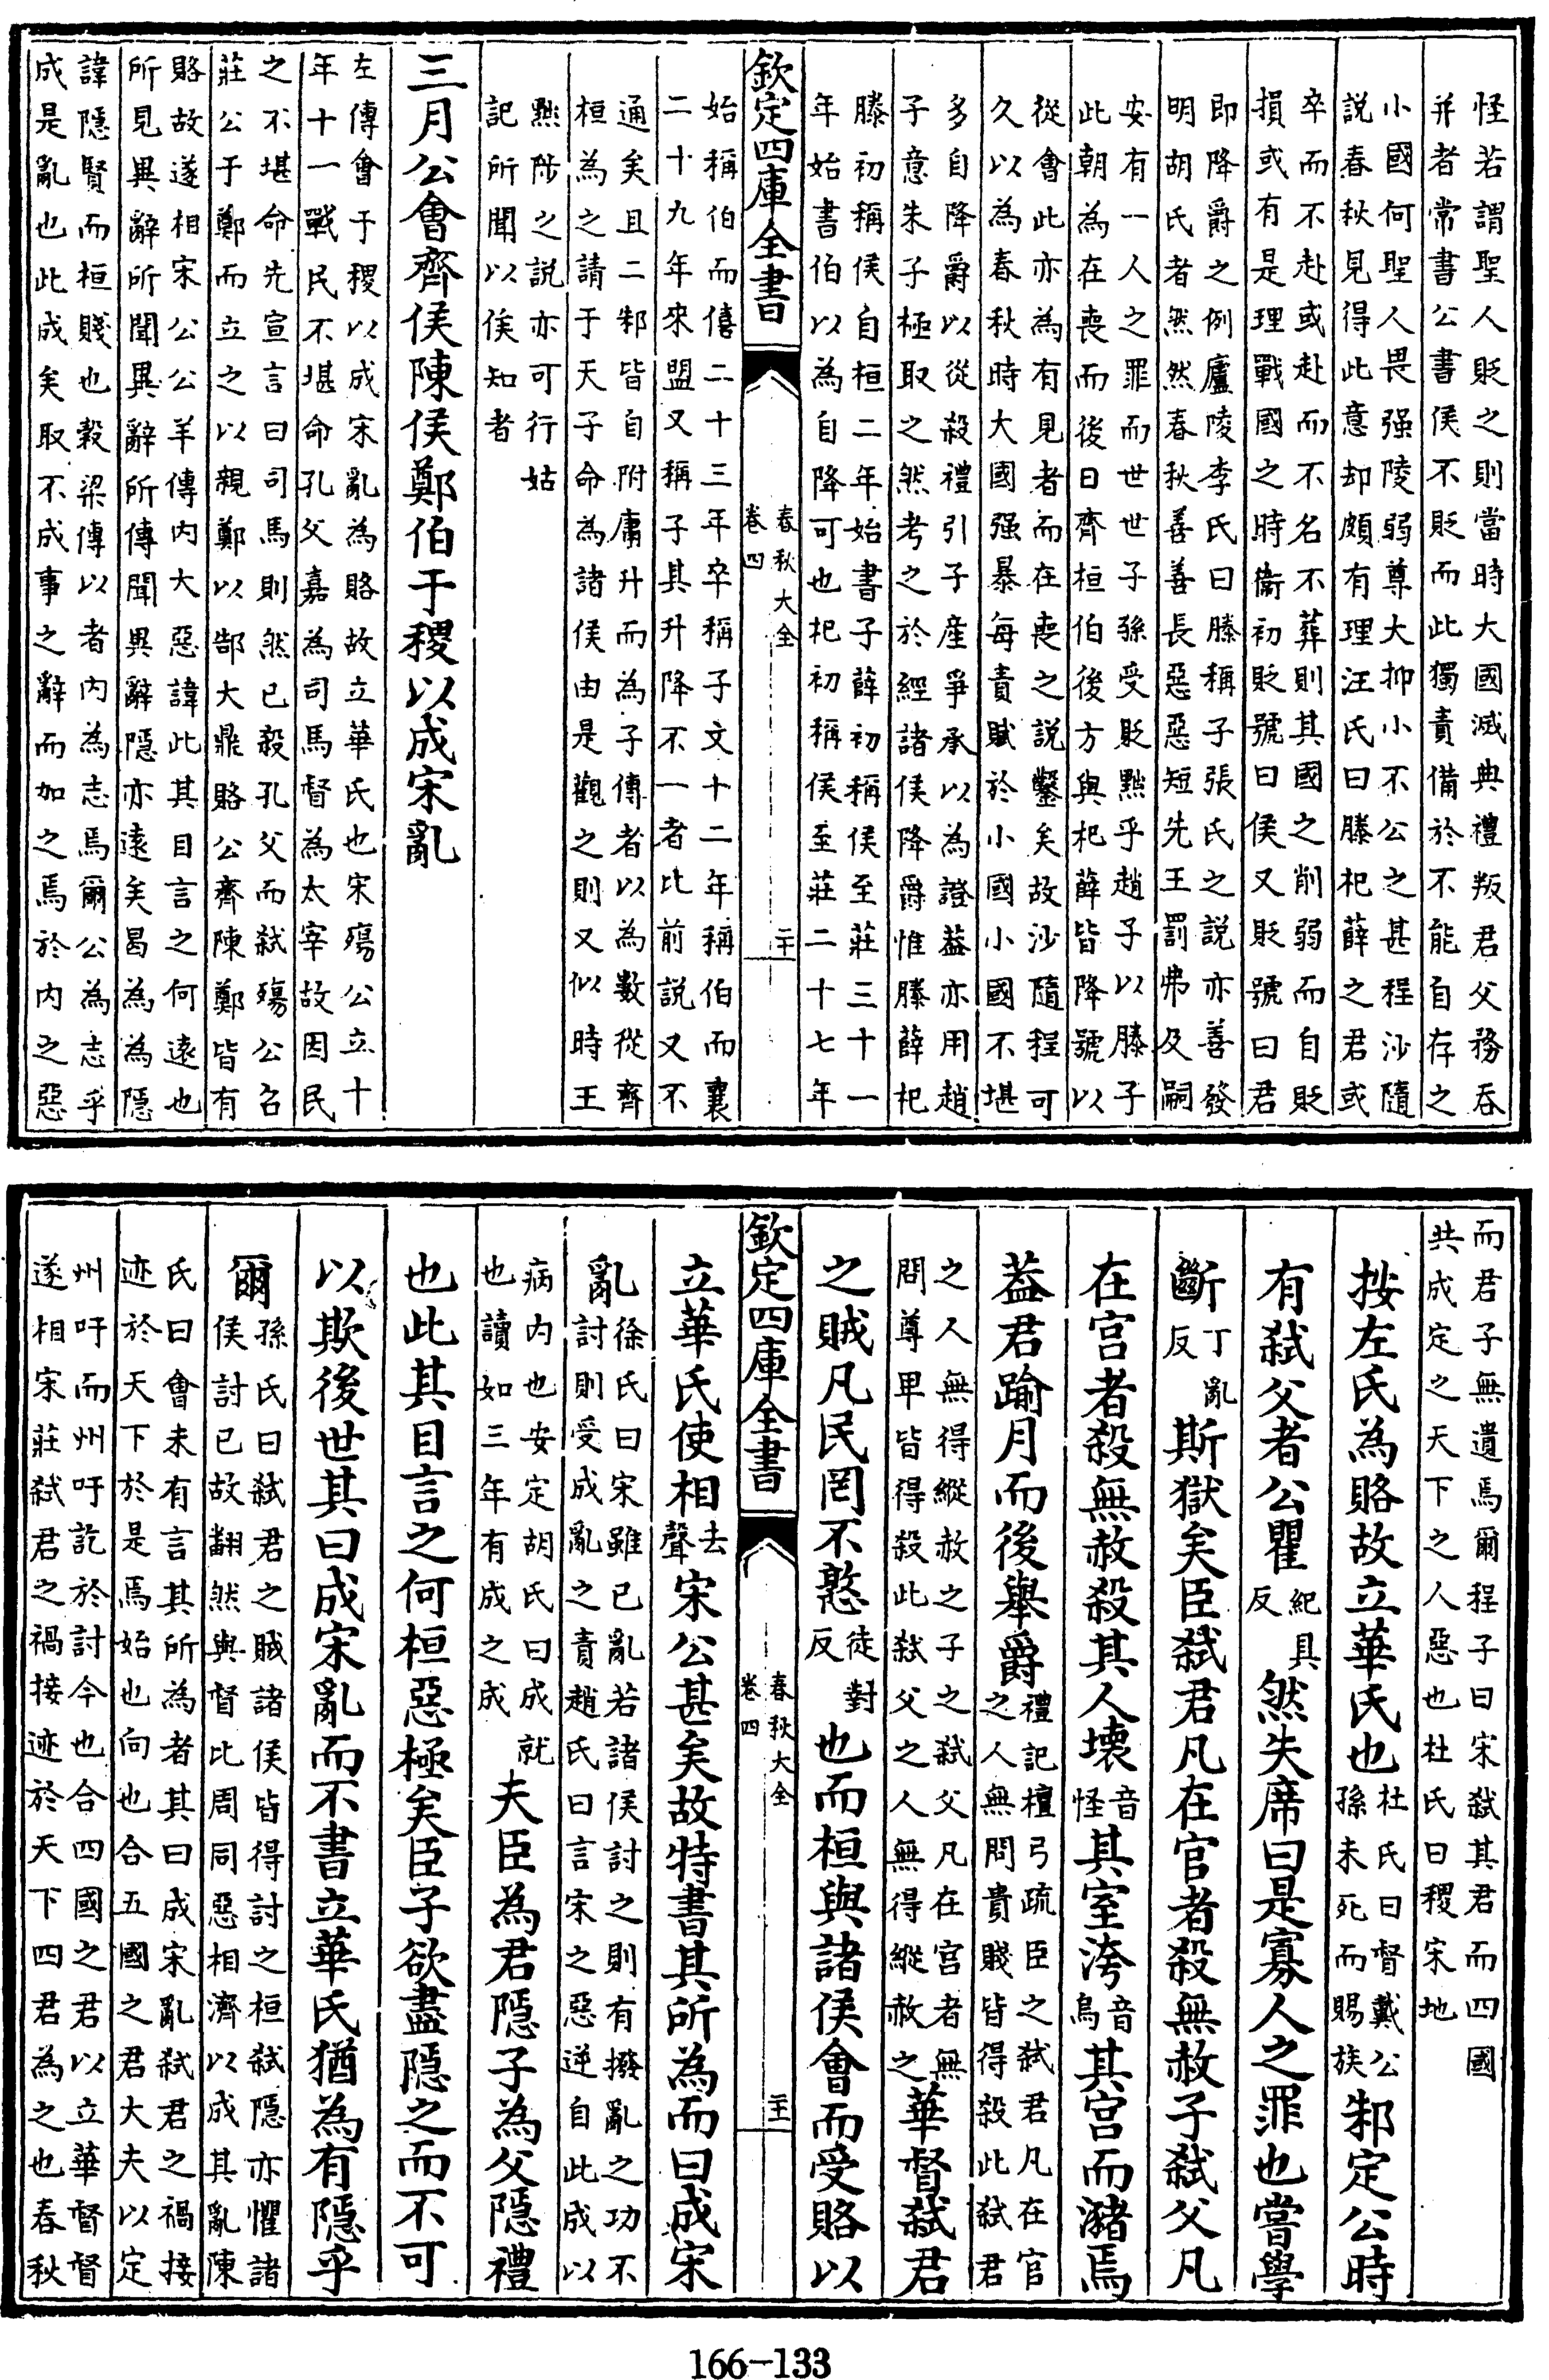 怪若謂聖人貶之則當時大國滅典禮叛君父務吞
并者常書公書侯不貶而此獨責備於不能自存之
小國何聖人畏强陵弱尊大抑小不公之甚程沙隨
說春秋見得此意却頗有理汪氏曰滕杞薛之君或
卒而不赴或赴而不名不葬則其國之削弱而自貶
損或有是理戰國之時衞初貶號曰侯又貶號曰君
即降爵之例廬陵李氏曰滕稱子張氏之說亦善發
明胡氏者然然春秋善善長惡惡短先王罰弗及嗣
安有一人之罪而世世子孫受貶黜乎趙子以滕子
此朝為在喪而後日齊桓伯後方與杞薛皆降號以
從會此亦為有見者而在喪之說鑿矣故沙隨程可
久以為春秋時大國强暴每責賦於小國小國不堪
多自降爵以從殺禮引子產爭承以為證蓋亦用趙
子意朱子極取之然考之於經諸侯降爵惟滕薛杞
滕初稱侯自桓二年始書子薛初稱侯至莊三十一
年始書伯以為自降可也杞初稱侯至莊二十七年
欽定四庫全書
春秋大全
卷四
二十
始稱伯而僖二十三年卒稱子文十二年稱伯而襄
二十九年來盟又稱子其升降不一者比前說又不
通矣且二邾皆自附庸升而為子傳者以為數從齊
桓為之請于天子命為諸侯由是觀之則又似時王
黜陟之說亦可行姑
記所聞以俟知者
三月公會齊侯陳侯鄭伯于稷以成宋亂
左傳會于稷以成宋亂為賂故立華氏也宋殤公立十
年十一戰民不堪命孔父嘉為司馬督為太宰故因民
之不堪命先宣言曰司馬則然已殺孔父而弒殤公召
莊公于鄭而立之以親鄭以郜大鼎賂公齊陳鄭皆有
賂故遂相宋公公羊傳内大惡諱此其目言之何遠也
所見異辭所聞異辭所傳聞異辭隱亦遠矣曷為為隱
諱隱賢而桓賤也穀梁傳以者内為志焉爾公為志乎
成是亂也此成矣取不成事之辭而加之焉於内之惡
而君子無遺焉爾程子曰宋弒其君而四國
共成定之天下之人惡也杜氏曰稷宋地
按左氏為賂故立華氏也杜氏曰督戴公孫未死而賜族邾定公時
有弒父者公瞿紀具反然失席曰是寡人之罪也嘗學
斷丁亂反斯獄矣臣弒君凡在官者殺無赦子弒父凡
在宫者殺無赦殺其人壞音怪其室洿音烏其宫而瀦焉
蓋君踰月而後舉爵禮記檀弓疏臣之弒君凡在官之人無問貴賤皆得殺此弒君
之人無得縱赦之子之弒父凡在宫者無問尊卑皆得殺此弒父之人無得縱赦之華督弒君
之賊凡民罔不憝徒對反也而桓與諸侯會而受賂以
欽定四庫全書
春秋大全
卷四
二十一
立華氏使相去聲宋公甚矣故特書其所為而曰成宋
亂徐氏曰宋雖已亂若諸侯討之則有撥亂之功不討則受成亂之責趙氏曰言宋之惡逆自此成以
病内也安定胡氏曰成就也讀如三年有成之成夫臣為君隱子為父隱禮
也此其目言之何桓惡極矣臣子欲盡隱之而不可
以欺後世其曰成宋亂而不書立華氏猶為有隱乎
爾孫氏曰弒君之賊諸侯皆得討之桓弒隱亦懼諸侯討已故翻然與督比周同惡相濟以成其亂陳
氏曰會未有言其所為者其曰成宋亂弒君之禍接
迹於天下於是焉始也向也合五國之君大夫以定
州吁而州吁訖於討今也合四國之君以立華督督
遂相宋莊弒君之禍接迹於天下四君為之也春秋
166-133